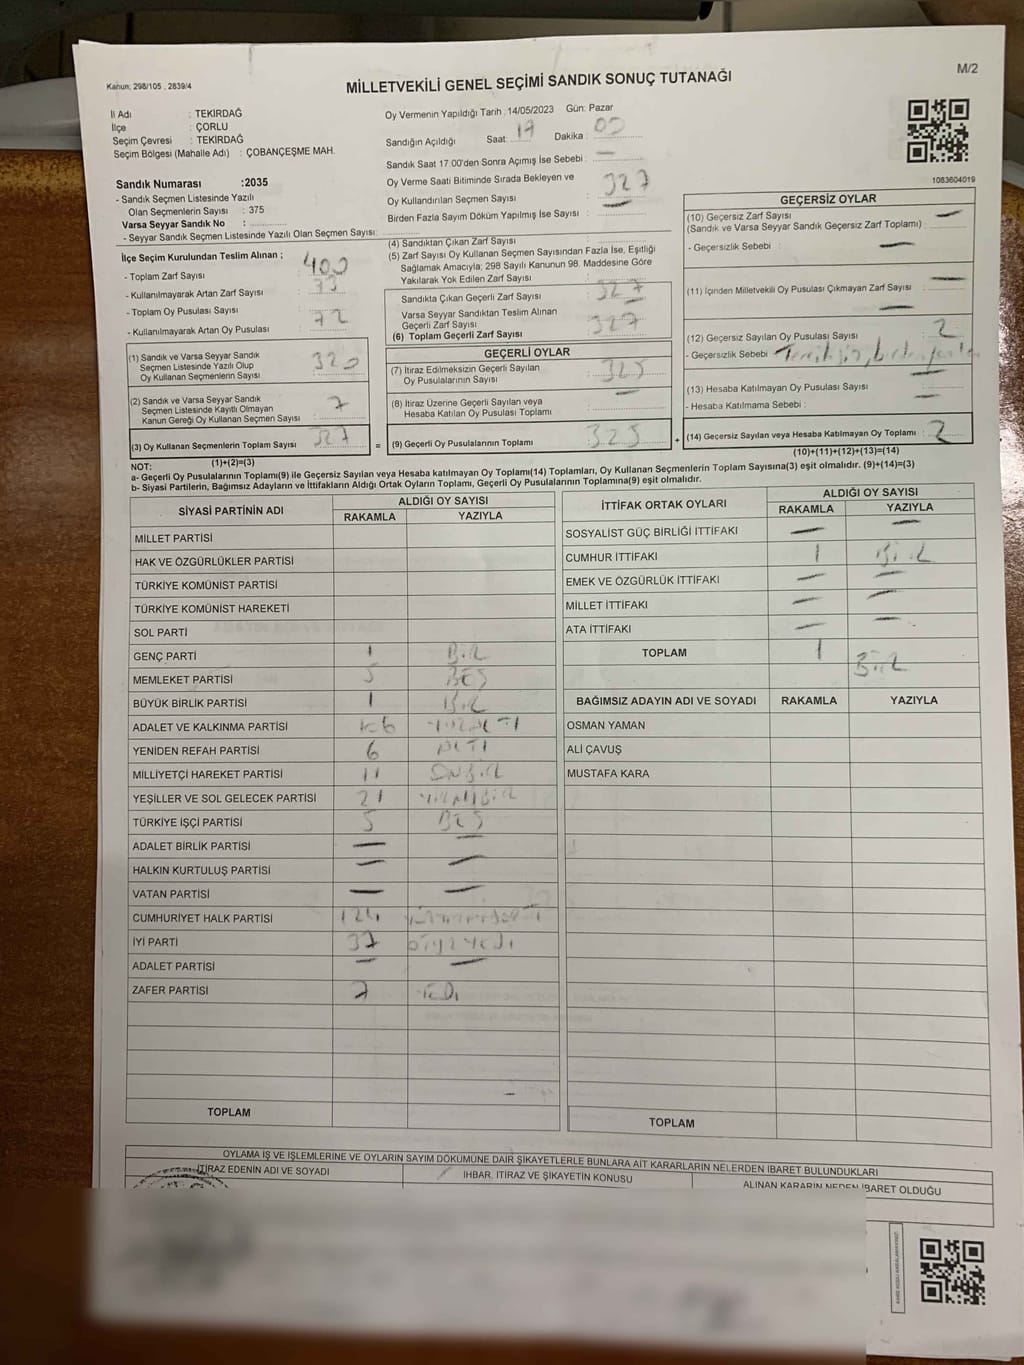 Kanun: 298/105 , 2839/4
MİLLETVEKİLİ GENEL SEÇİMİ SANDIK SONUÇ TUTANAĞI
M/2
İl Adı : TEKİRDAĞ
İlçe : ÇORLU
Seçim Çevresi : TEKİRDAĞ
Seçim Bölgesi (Mahalle Adı) : ÇOBANÇEŞME MAH.
Sandık Numarası :2035
- Sandık Seçmen Listesinde Yazılı
Olan Seçmenlerin Sayısı : 375
Varsa Seyyar Sandık No :
- Seyyar Sandık Seçmen Listesinde Yazılı Olan Seçmen Sayısı:
Oy Vermenin Yapıldığı Tarih : 14/05/2023 Gün: Pazar
Sandığın Açıldığı Saat: 17 Dakika : 00
Sandık Saat 17:00'den Sonra Açımış İse Sebebi : —
Oy Verme Saati Bitiminde Sırada Bekleyen ve
Oy Kullandırılan Seçmen Sayısı : 327
Birden Fazla Sayım Döküm Yapılmış İse Sayısı : —
1083604019
İlçe Seçim Kurulundan Teslim Alınan ;
- Toplam Zarf Sayısı : 400
- Kullanılmayarak Artan Zarf Sayısı : 73
- Toplam Oy Pusulası Sayısı :
- Kullanılmayarak Artan Oy Pusulası : 72
(1) Sandık ve Varsa Seyyar Sandık
Seçmen Listesinde Yazılı Olup
Oy Kullanan Seçmenlerin Sayısı : 320
(2) Sandık ve Varsa Seyyar Sandık
Seçmen Listesinde Kayıtlı Olmayan
Kanun Gereği Oy Kullanan Seçmen Sayısı : 7
(3) Oy Kullanan Seçmenlerin Toplam Sayısı : 327
(1)+(2)=(3)
(4) Sandıktan Çıkan Zarf Sayısı :
(5) Zarf Sayısı Oy Kullanan Seçmen Sayısından Fazla İse, Eşitliği
Sağlamak Amacıyla, 298 Sayılı Kanunun 98. Maddesine Göre
Yakılarak Yok Edilen Zarf Sayısı :
Sandıkta Çıkan Geçerli Zarf Sayısı : 327
Varsa Seyyar Sandıktan Teslim Alınan
Geçerli Zarf Sayısı :
(6) Toplam Geçerli Zarf Sayısı : 327
GEÇERLİ OYLAR
(7) İtiraz Edilmeksizin Geçerli Sayılan
Oy Pusulalarının Sayısı : 325
(8) İtiraz Üzerine Geçerli Sayılan veya
Hesaba Katılan Oy Pusulası Toplamı : —
= (9) Geçerli Oy Pusulalarının Toplamı : 325 +
GEÇERSİZ OYLAR
(10) Geçersiz Zarf Sayısı —
(Sandık ve Varsa Seyyar Sandık Geçersiz Zarf Toplamı) :
- Geçersizlik Sebebi : —
(11) İçinden Milletvekili Oy Pusulası Çıkmayan Zarf Sayısı : —
(12) Geçersiz Sayılan Oy Pusulası Sayısı : 2
- Geçersizlik Sebebi :
(13) Hesaba Katılmayan Oy Pusulası Sayısı : —
- Hesaba Katılmama Sebebi : —
(14) Geçersiz Sayılan veya Hesaba Katılmayan Oy Toplamı : 2
(10)+(11)+(12)+(13)=(14)
NOT:
a- Geçerli Oy Pusulalarının Toplamı(9) ile Geçersiz Sayılan veya Hesaba katılmayan Oy Toplamı(14) Toplamları, Oy Kullanan Seçmenlerin Toplam Sayısına(3) eşit olmalıdır. (9)+(14)=(3)
b- Siyasi Partilerin, Bağımsız Adayların ve İttifakların Aldığı Ortak Oyların Toplamı, Geçerli Oy Pusulalarının Toplamına(9) eşit olmalıdır.
SİYASİ PARTİNİN ADI ALDIĞI OY SAYISI
RAKAMLA YAZIYLA
MİLLET PARTİSİ
HAK VE ÖZGÜRLÜKLER PARTİSİ
TÜRKİYE KOMÜNİST PARTİSİ
TÜRKİYE KOMÜNİST HAREKETİ
SOL PARTİ
GENÇ PARTİ 1 BİR
MEMLEKET PARTİSİ 5 BEŞ
BÜYÜK BİRLİK PARTİSİ 1 BİR
ADALET VE KALKINMA PARTİSİ
YENİDEN REFAH PARTİSİ 6 ALTI
MİLLİYETÇİ HAREKET PARTİSİ 11 ONBİR
YEŞİLLER VE SOL GELECEK PARTİSİ 21 YİRMİBİR
TÜRKİYE İŞÇİ PARTİSİ 5 BEŞ
ADALET BİRLİK PARTİSİ — —
HALKIN KURTULUŞ PARTİSİ — —
VATAN PARTİSİ — —
CUMHURİYET HALK PARTİSİ 124
İYİ PARTİ 37 OTUZYEDİ
ADALET PARTİSİ — —
ZAFER PARTİSİ 7 YEDİ
TOPLAM
İTTİFAK ORTAK OYLARI ALDIĞI OY SAYISI
RAKAMLA YAZIYLA
SOSYALİST GÜÇ BİRLİĞİ İTTİFAKI — —
CUMHUR İTTİFAKI 1 BİR
EMEK VE ÖZGÜRLÜK İTTİFAKI — —
MİLLET İTTİFAKI — —
ATA İTTİFAKI — —
TOPLAM 1 BİR
BAĞIMSIZ ADAYIN ADI VE SOYADI RAKAMLA YAZIYLA
OSMAN YAMAN
ALİ ÇAVUŞ
MUSTAFA KARA
TOPLAM
OYLAMA İŞ VE İŞLEMLERİNE VE OYLARIN SAYIM DÖKÜMÜNE DAİR ŞİKAYETLERLE BUNLARA AİT KARARLARIN NELERDEN İBARET BULUNDUKLARI
İTİRAZ EDENİN ADI VE SOYADI İHBAR, İTİRAZ VE ŞİKAYETİN KONUSU ALINAN KARARIN NEDEN İBARET OLDUĞU